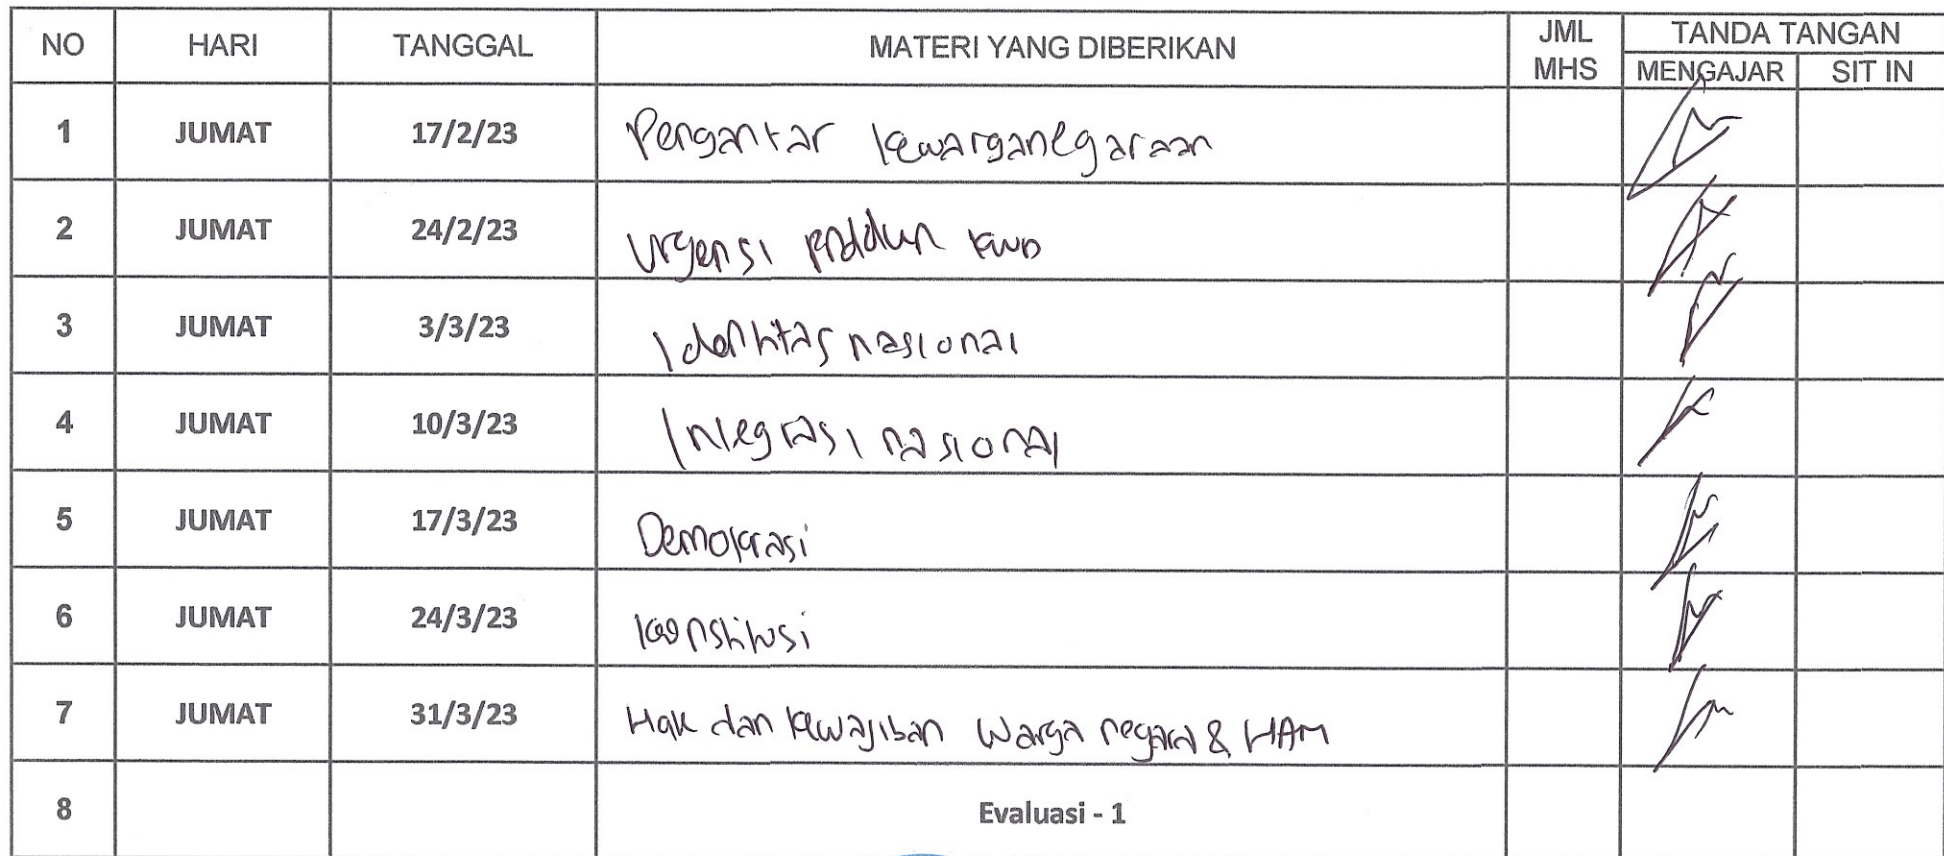 NO HARI TANGGAL MATERI YANG DIBERIKAN JML MHS TANDA TANGAN
MENGAJAR SIT IN
1 JUMAT 17/2/23 Pengantar kewarganegaraan
2 JUMAT 24/2/23 Urgensi
3 JUMAT 3/3/23 Identitas nasional
4 JUMAT 10/3/23 Integrasi nasional
5 JUMAT 17/3/23 Demokrasi
6 JUMAT 24/3/23 konstitusi
7 JUMAT 31/3/23 Hak dan kewajiban warga negara & HAM
8 Evaluasi - 1